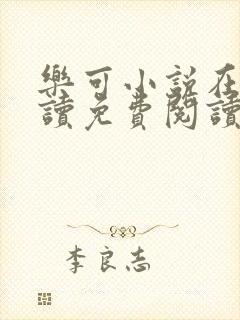 樂可小說在
讀免費閱讀
李良志